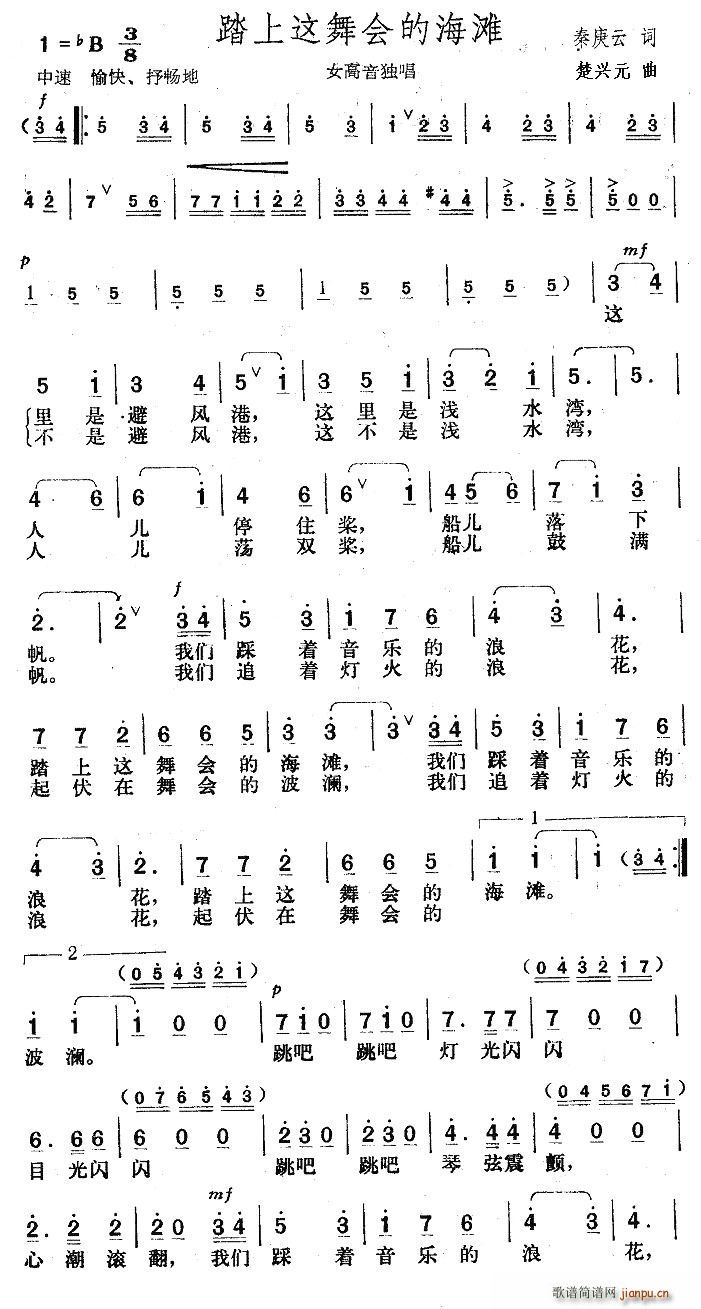 踏上这舞会的海滩
1=♭B 3/8
秦庚云 词
中速 愉快、抒畅地
女高音独唱
楚兴元 曲
f
(3 4 ‖: 5 3 4 | 5 3 4 | 5 3 | 1 ∨ 2 3 | 4 2 3 | 4 2 3 |
4 2 | 7 ∨ 5 6 | 7 7 1 1 2 2 | 3 3 4 4 #4 4 | 5. 5 5 | 5 0 0 |
p mf
1 5 5 | 5 5 5 | 1 5 5 | 5 5 5) | 3 4 |
这
5 1 | 3 4 | 5 ∨ 1 | 3 5 1 | 3 2 1 | 5. | 5. |
里是避风港, 这里是浅水湾,
不是避风港, 这不是浅水湾,
4 6 | 6 1 | 4 6 | 6 ∨ 1 | 4 5 6 | 7 1 3 |
人儿停住桨, 船儿落下
人儿荡双桨, 船儿鼓满
f
2. | 2 ∨ 3 4 | 5 3 | 1 7 6 | 4 3 | 4. |
帆。 我们踩着音乐的浪花,
帆。 我们追着灯火的浪花,
7 7 2 | 6 6 5 | 3 3 | 3 ∨ 3 4 | 5 3 | 1 7 6 |
踏上这舞会的海滩, 我们踩着音乐的
起伏在舞会的波澜, 我们追着灯火的
1
4 3 | 2. | 7 7 2 | 6 6 5 | 1 1 | 1 (3 4 :‖
浪花, 踏上这舞会的海滩。
浪花, 起伏在舞会的
2
(0 5 4 3 2 1) (0 4 3 2 1 7)
p
1 1 | 1 0 0 | 7 1 0 | 7 1 0 | 7. 7 7 | 7 0 0 |
波澜。 跳吧 跳吧 灯光闪闪
(0 7 6 5 4 3) (0 4 5 6 7 1)
6. 6 6 | 6 0 0 | 2 3 0 | 2 3 0 | 4. 4 4 | 4 0 0 |
目光闪闪 跳吧 跳吧 琴弦震颤,
mf
2. 2 2 | 2 0 3 4 | 5 3 | 1 7 6 | 4 3 | 4. |
心潮滚翻, 我们踩着音乐的浪花,
歌谱简谱网
jianpu.cn